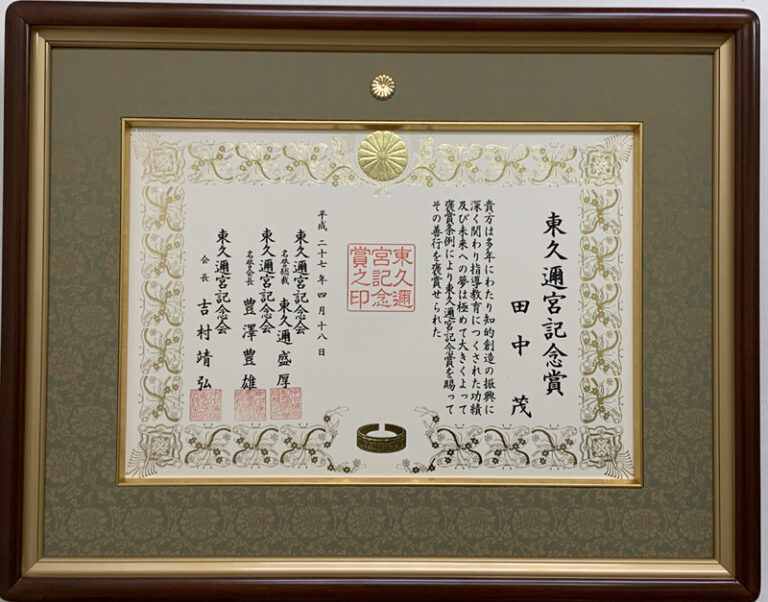 東久邇宮記念賞
田中 茂
貴方は多年にわたり知的創造の振興に
深く関わり指導教育につくされた功績
及び未来への夢は極めて大きくよって
褒賞条例により東久邇宮記念賞を賜って
その善行を褒賞せられた
東久邇
宮記念
賞之印
平成二十七年四月十八日
東久邇宮記念会
名誉総裁 東久邇盛厚
東久邇宮記念会
名誉会長 豊澤豊雄
東久邇宮記念会
会長 吉村靖弘